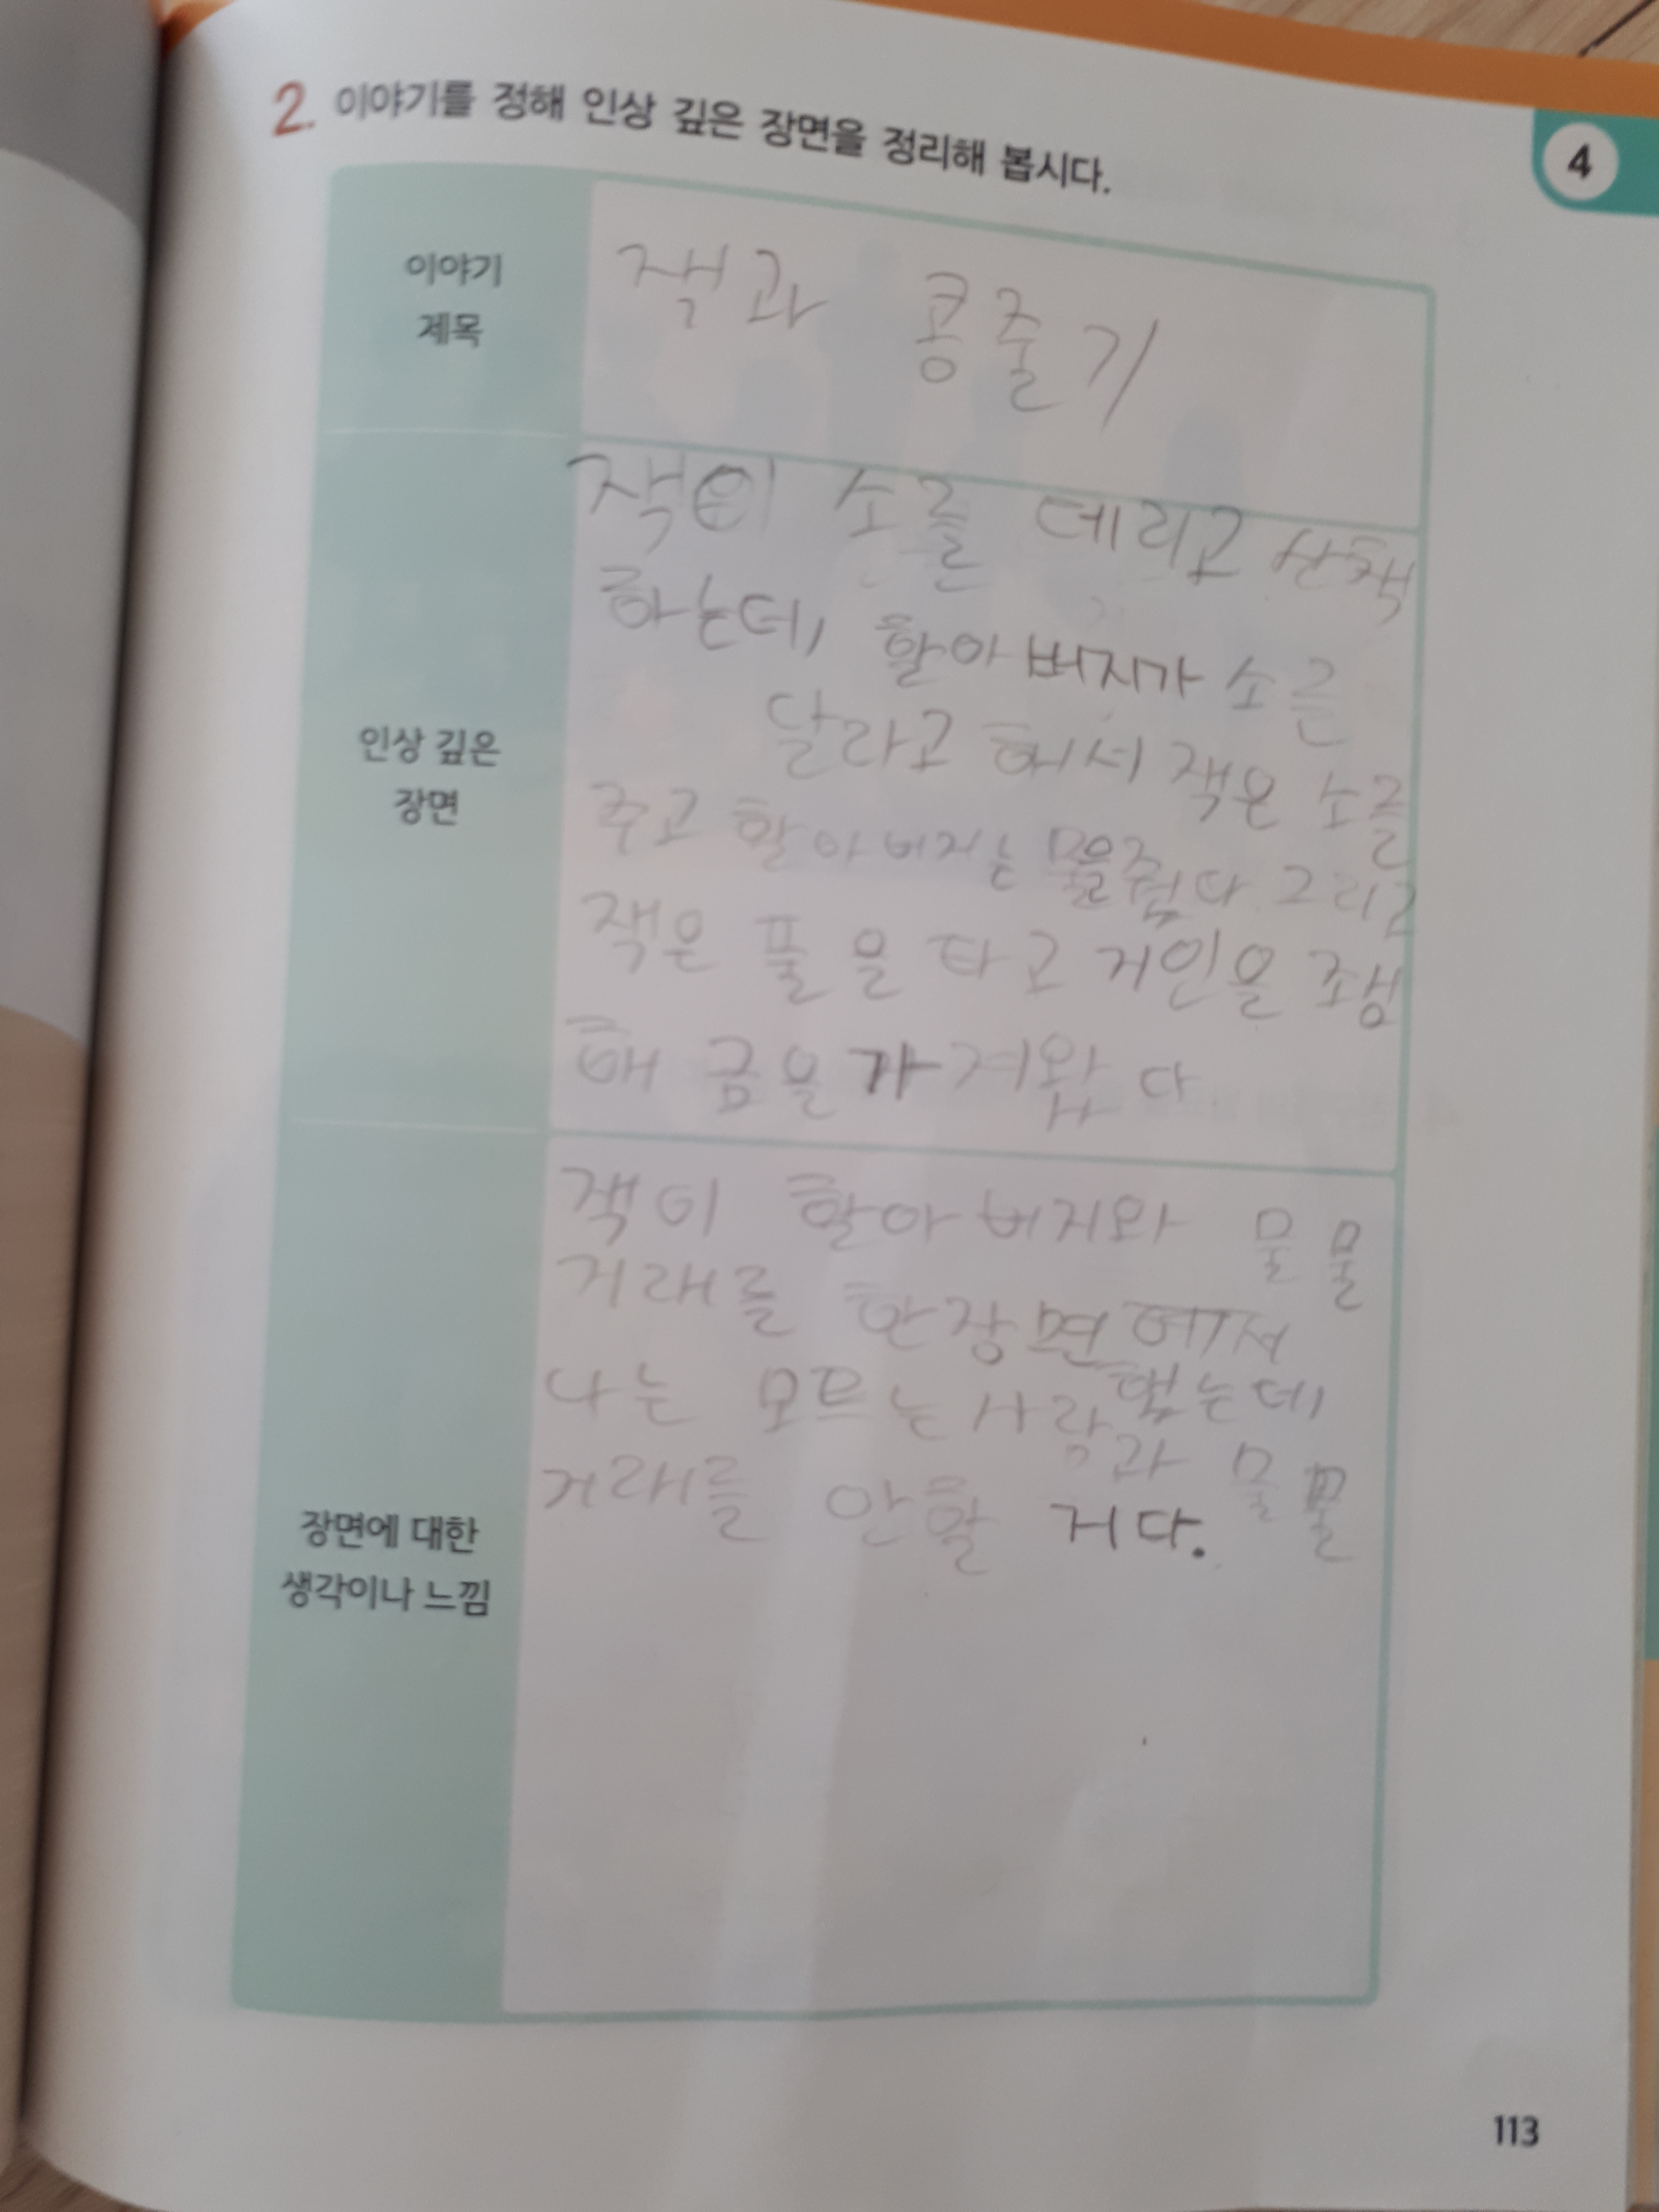 2. 이야기를 정해 인상 깊은 장면을 정리해 봅시다.
4
이야기
제목
잭과 콩줄기
인상 깊은
장면
잭이 소를 데리고 산책
하는데, 할아버지가 소를
달라고 해서 잭은 소를
주고 할아버지는 물줬다 그리고
잭은 풀을 타고 거인을
해 금을 가져왔다
장면에 대한
생각이나 느낌
잭이 할아버지와 물물
거래를 한장면에서
나는 모르는사람과 물물
거래를 안할 거다.
113